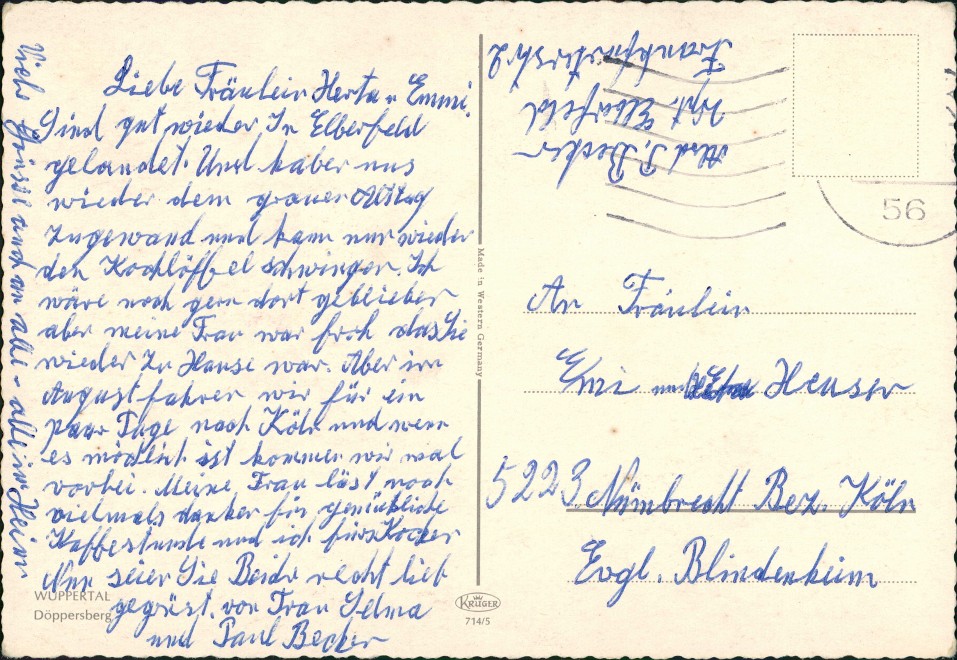 Liebe Fräulein Herta u Emmi.
Sind gut wieder In Elberfeld
gelandet. Und haben uns
wieder dem grauen Alltag
zugewand und kann nur wieder
den Kochlöffel schwingen. Ich
wäre noch gern dort geblieben
aber meine Frau war froh das Sie
wieder Zu Hause war. Aber im
August fahren wir für ein
paar Tage nach Köln und wenn
es möglich ist kommen wir mal
vorbei. Meine Frau läst noch
vielmals danken für gemütliche
Kaffestunde und ich fürs Kochen
Nun seien Sie Beide recht lieb
gegrüst. von Frau Selma
und Paul Becker
Viele Grüsse auch an alle - alle im Heim
WUPPERTAL
Döppersberg
Made in Western Germany
KRÜGER
714/5
Absd. P. Becker
Wpt. Elberfeld
Frankfurterstr 2
56
An Fräulein
Emi und Heuser
5223 Nümbrecht Bez. Köln
Evgl. Blindenheim